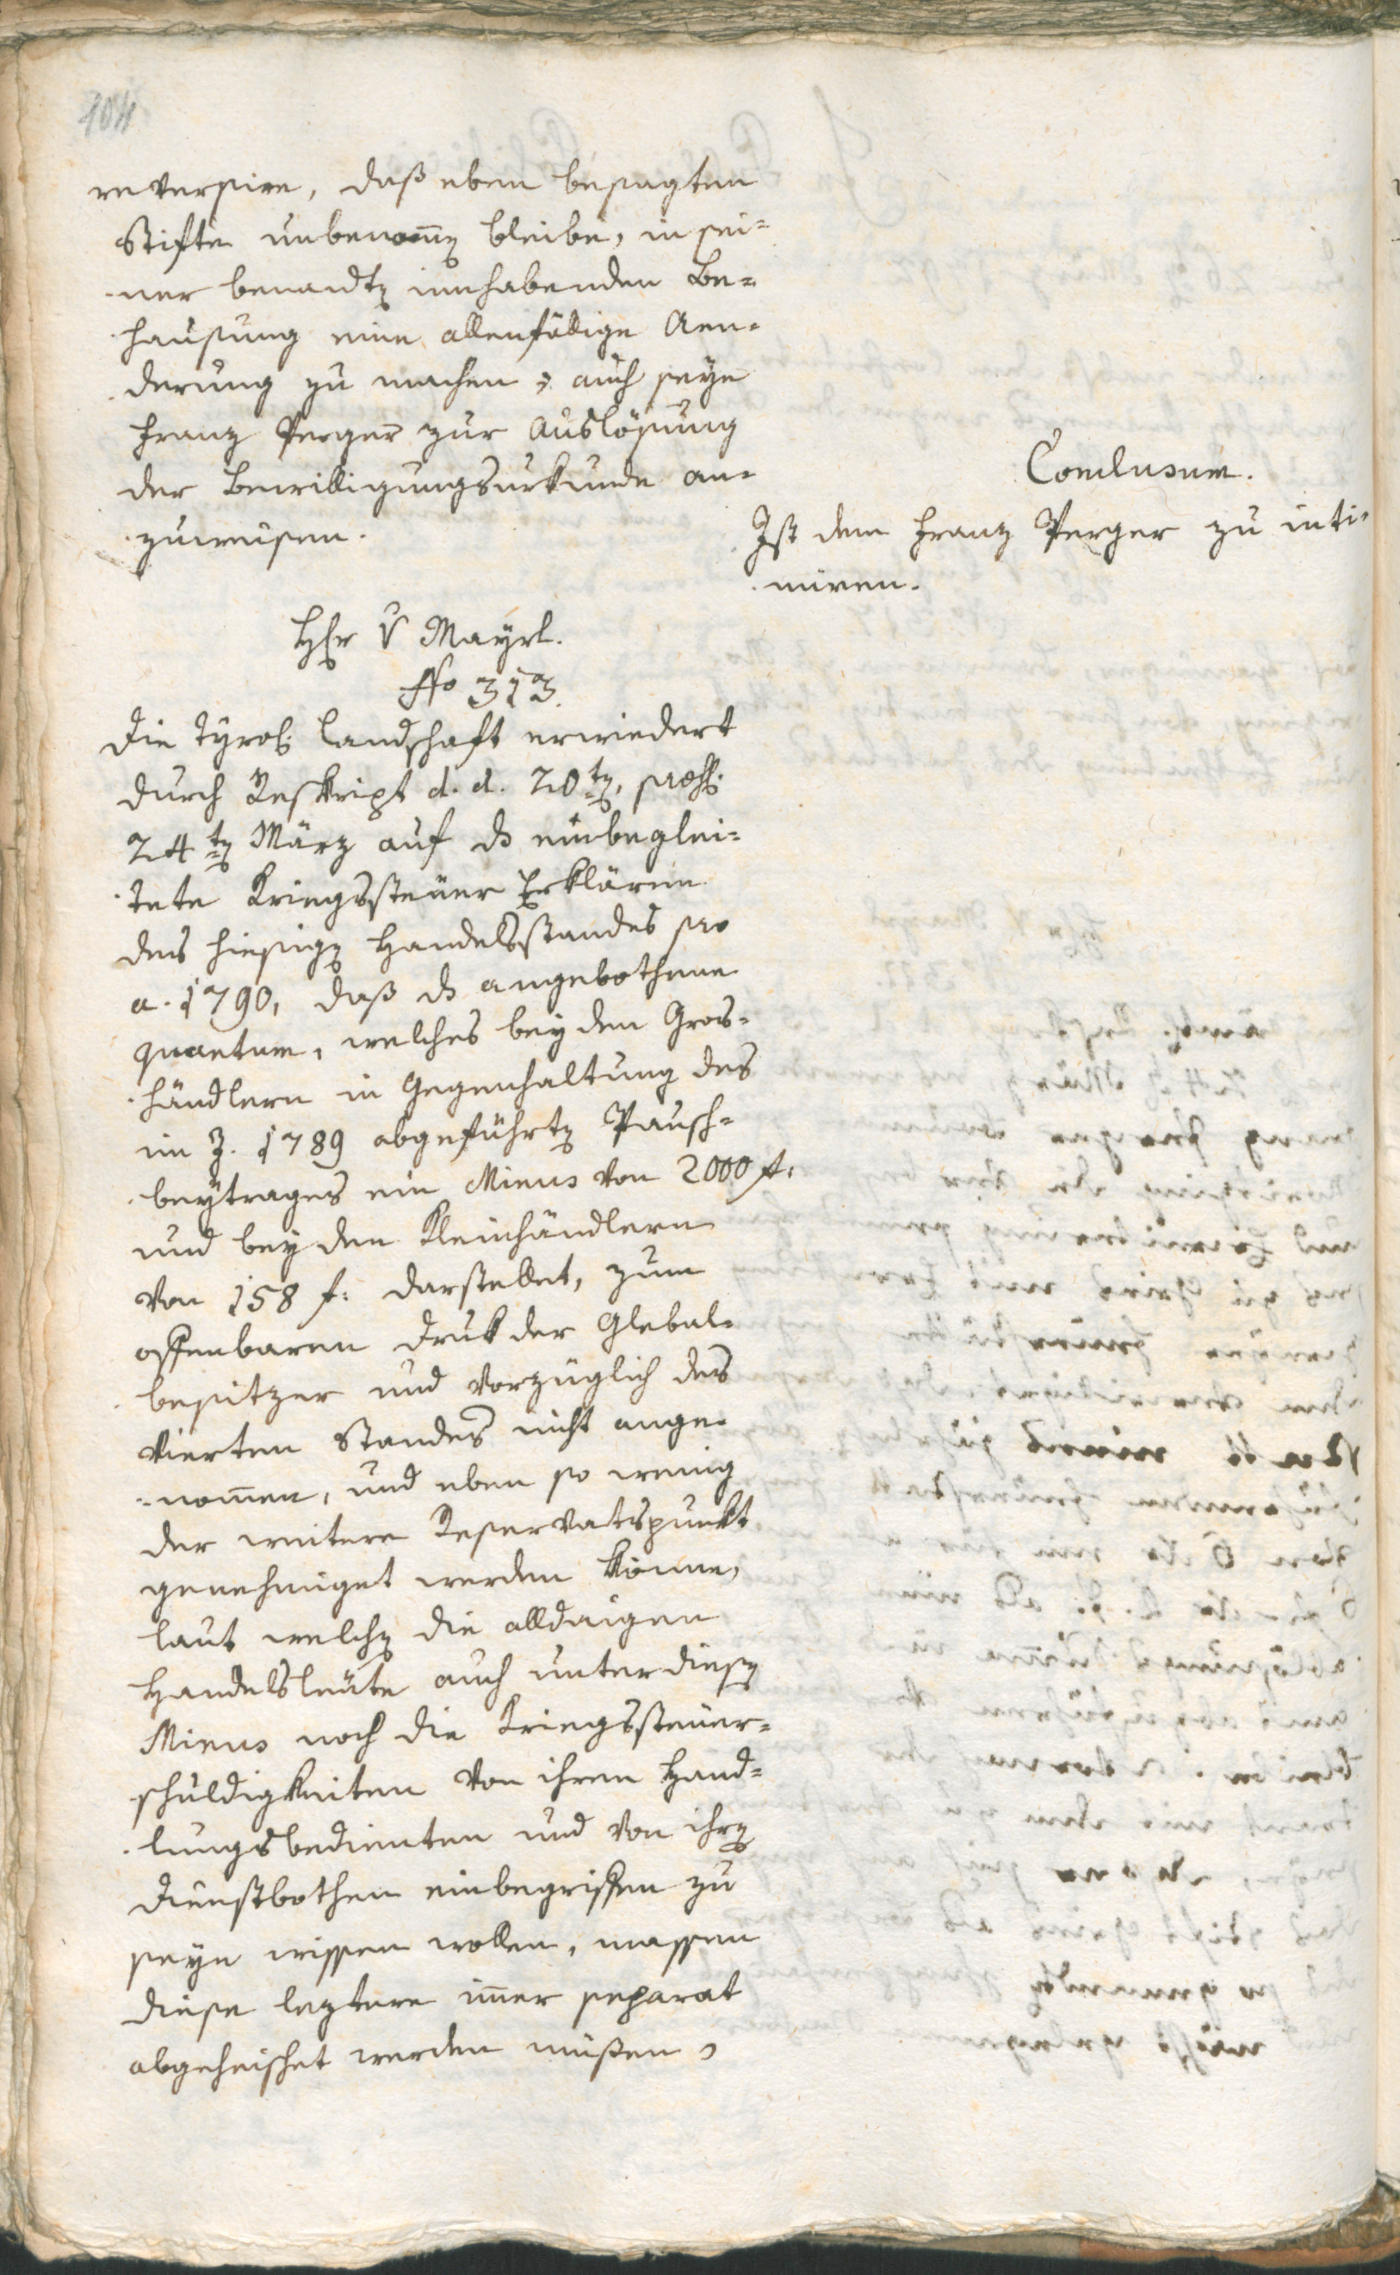 104
reversire, daß eben besagten
Stifte unbenomē bleibe, in sei=
ner benandtē innhabenden Be=
hausung eine allenfällige Aen=
derung zu machen; auch seye
Franz Perger zur Auslösung
der Bewilligungsurkunde an=
zuweisen.
Conclusum.
Ist dem Franz Perger zu inti=
miren.
Hr v Mayrl.
No 313.
Die Tyrol. Landschaft erwiedert
durch Reskript d. d. 20tē, præs.
24tē März auf ds einbeglei=
tete Kriegssteuer Erklären
des hiesigē Handelsstandes pro
a. 1790, daß ds angebothene
quantum, welches bey den Gros=
händlern in Gegenhaltung des
im J. 1789 abgeführtē Pausch=
beytrages ein Minus von 2000 f:
und bey den Kleinhändlern
von 158 f: darstellet, zum
offenbaren Druk der Glebal=
besitzer und vorzüglich des
vierten Standes nicht ange=
nom̄en, und eben so wenig
der weitere Reservatspunkt
genehmiget werden könne,
laut welchē die alldaigen
Handelsleute auch unter diesē
Minus noch die Kriegssteuer=
schuldigkeiten von ihren Hand=
lungsbedienten und von ihrē
Dienstbothen einbegriffen zu
seyn wissen wollen, massen
diese leztere im̄er separat
abgeheischet werden müßen,